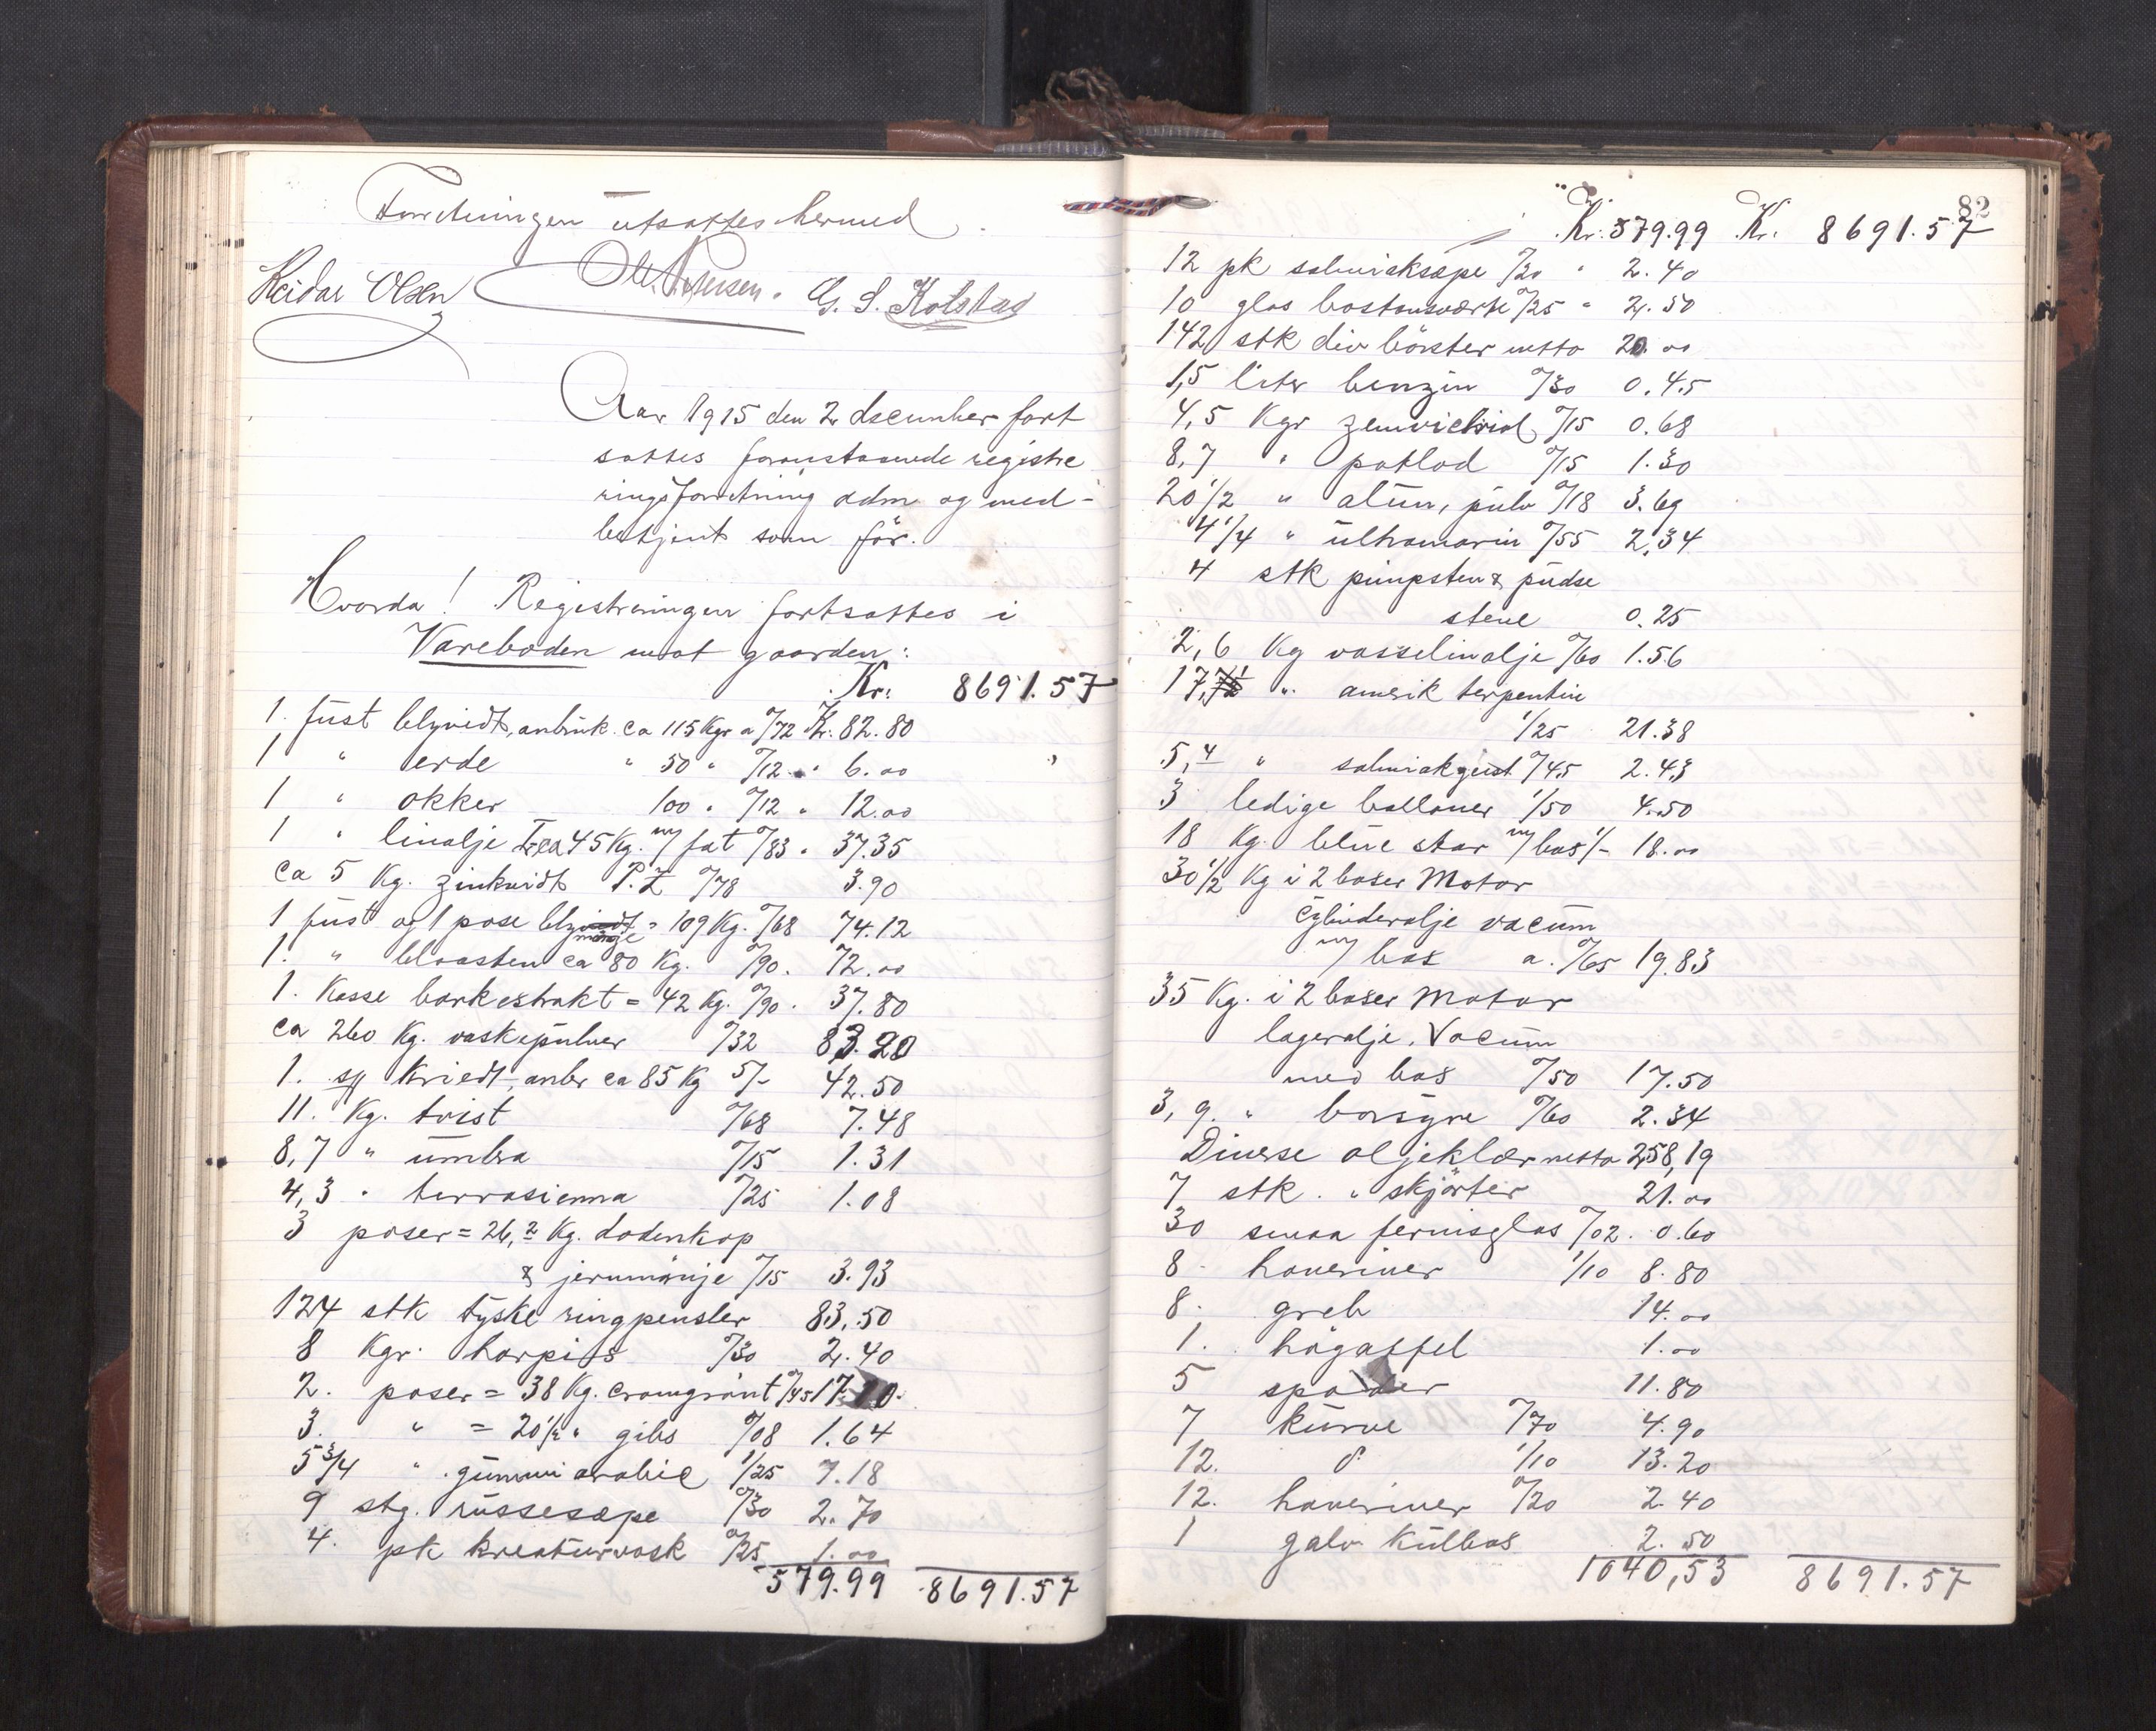 Forretningen utsattes hermed.
Reidar Olsen G. S. Kolstad
Aar 1915 den 2 december fort
sattes foranstaaende registre
ringsforretning adm og med-
betjent som för.
Hvorda! Registreringen fortsattes i
Vareboden mot gaarden:
Kr. 8691.57
1. füst blyvidt, anbrük. ca 115 Kgr a 0/72 Kr. 82.80
1 " erde " 50 " 0/12 " 6.00
1 " okker 100 " 0/12 " 12.00
1 " linolje ca 45 Kg. m/ fat 0/83 " 37.35
ca 5 Kg. zinkvidt P.Z 0/78 3.90
1 füst og 1 pose blymönje = 109 Kg. 0/68 74.12
1. " blaasten ca 80 Kg. 0/90. 72.00
1. Kasse barkestrakt = 42 Kg. 0/90. 37.80
ca 260 Kg. vaskepulver 0/32 83.20
1. sp Kriedt, anbr ca 85 Kg 5/- 42.50
11. Kg. tvist 0/68 7.48
8,7 " ümbra 0/15 1.31
4,3 " terrasienna 0/25 1.08
3 poser = 26,2 Kg. dodenkop
& jernmönje 0/15 3.93
124 stk tyske ringpensler 83.50
8 Kgr. harpiks 0/30 2.40
2. poser = 38 Kg. cromgrönt 0/45 17.10.
3. " = 20 1/2 " gibs 0/08 1.64
5 3/4 " gümmi arabic 1/25 7.18
9 stg. rüssesæpe 0/30 2.70
4. pk kreaturvask 0/25 1.00
579.99 8691.57
82
Kr. 579.99 Kr. 8691.57
12 pk salmiaksæpe 0/20 " 2.40
10 glas bostonsværte 0/25 " 2.50
142 stk div börster netto 20.00
1,5 liter benzin 0/30 0.45
4,5 Kgr 0/15 0.68
8,7 " potlod 0/15 1.30
20 1/2 " alün, pülv 0/18 3.69
4 1/4 " ültramarin 0/55 2,34
4 stk pimpsten & püdse
stene 0.25
2,6 Kg vasselinolje 0/60 1.56
17,1 " amerik terpentin
1/25 21.38
5,4 " salmiakgeist 0/45 2.43
3 ledige balloner 1/50 4.50
18 Kg. blüe star m/ box 1/- 18.00
30 1/2 Kg i 2 boxer Motor
Cylinderolje vacüm
m/ box a. 0/65 19.83
35 Kg. i 2 boxer Motor
lagerolje. Vacüm
med box 0/50 17.50
3,9. " borsyre 0/60 2.34
Diverse oljeklær netto 258,19
7 stk. " skjörter 21.00
30 smaa fernisglas 0/02. 0.60
8. haveriver 1/10 8.80
8. greb 14.00
1. högaffel 1.00
5 spader 11.80
7 kürve 0/70 4.90
12. do 1/10 13.20
12. haveriver 0/20 2.40
1 galv Külbox 2.50
1040,53 8691.57